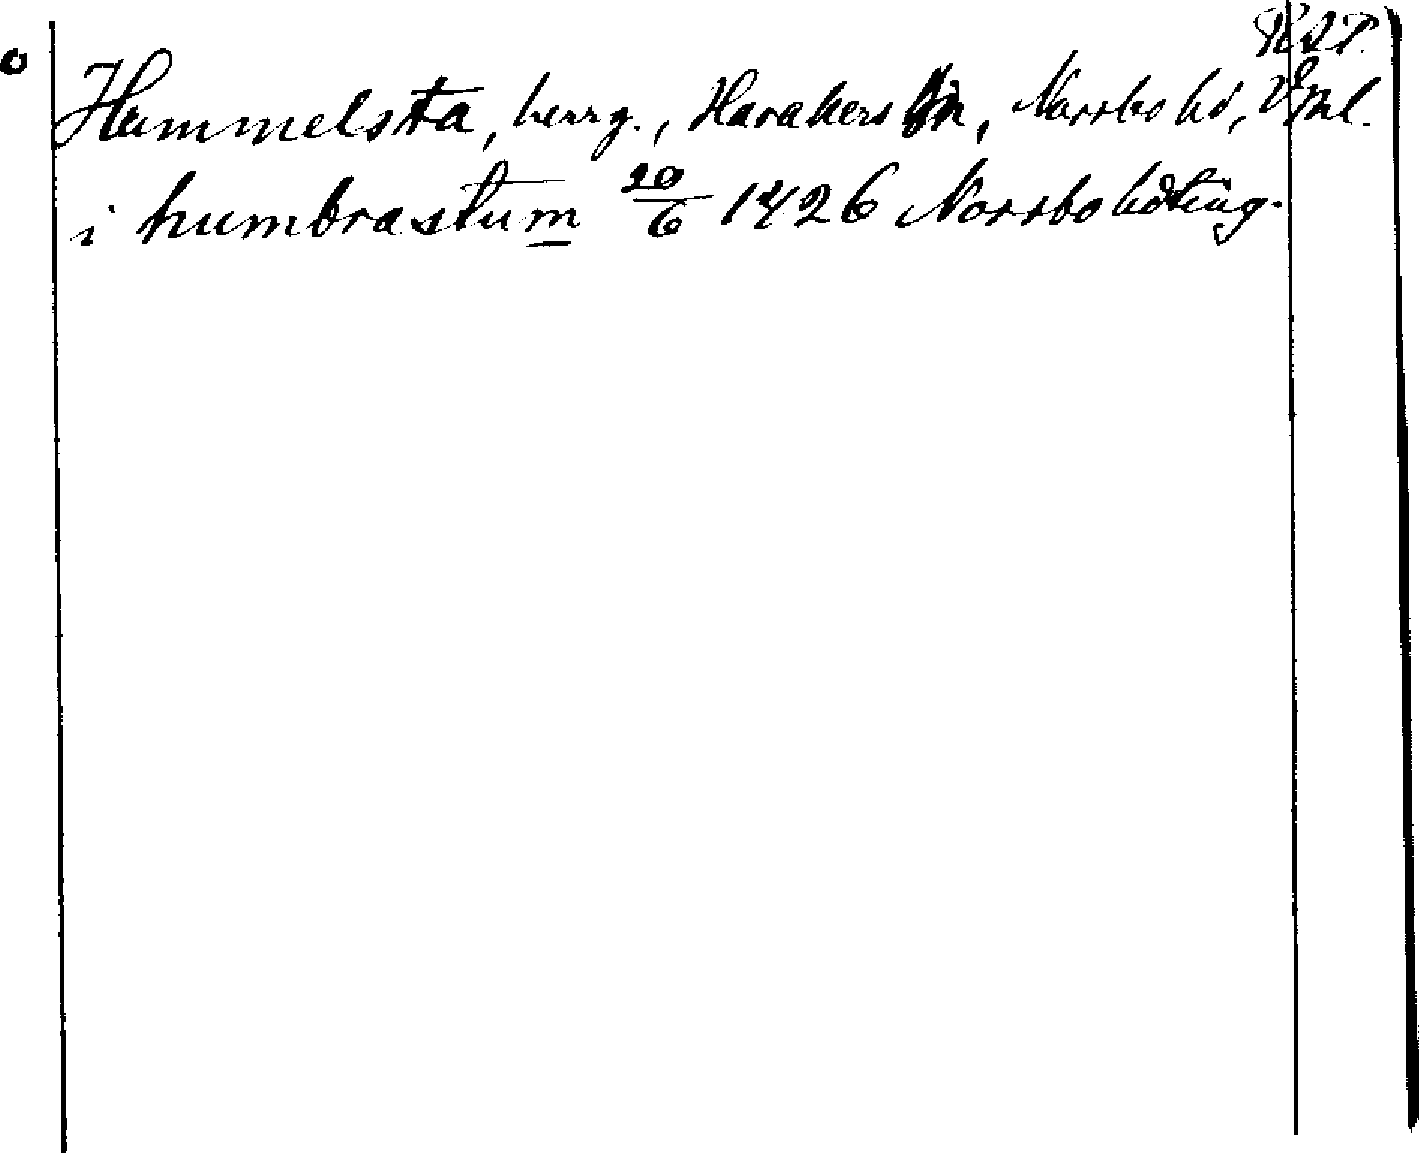 RAP.
Hummelsta, herrg., Harakers sn, Norrbo hd, Vstml.
i humbrastum 20/6 1426 Norrbo hdting.